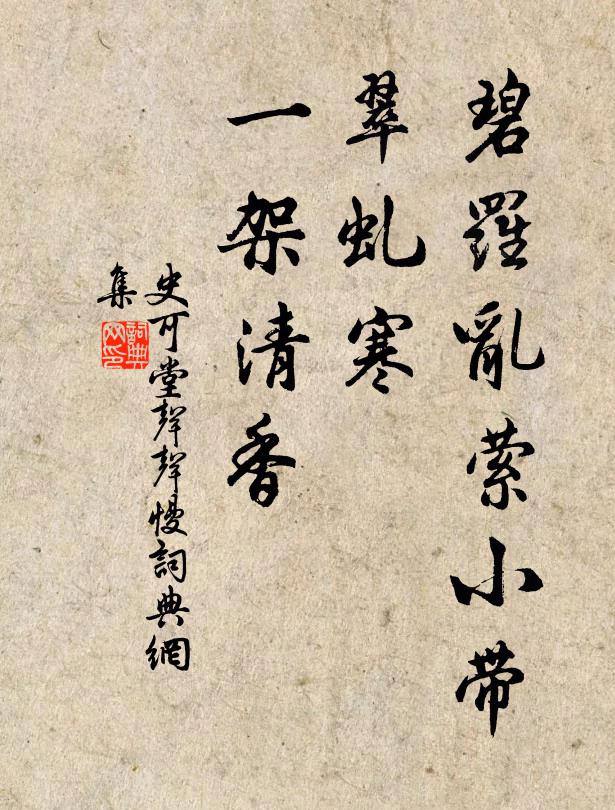 碧羅亂縈小帶
翠虬寒
一架清香
史可堂聲聲慢詞典網
集
詞典
网印